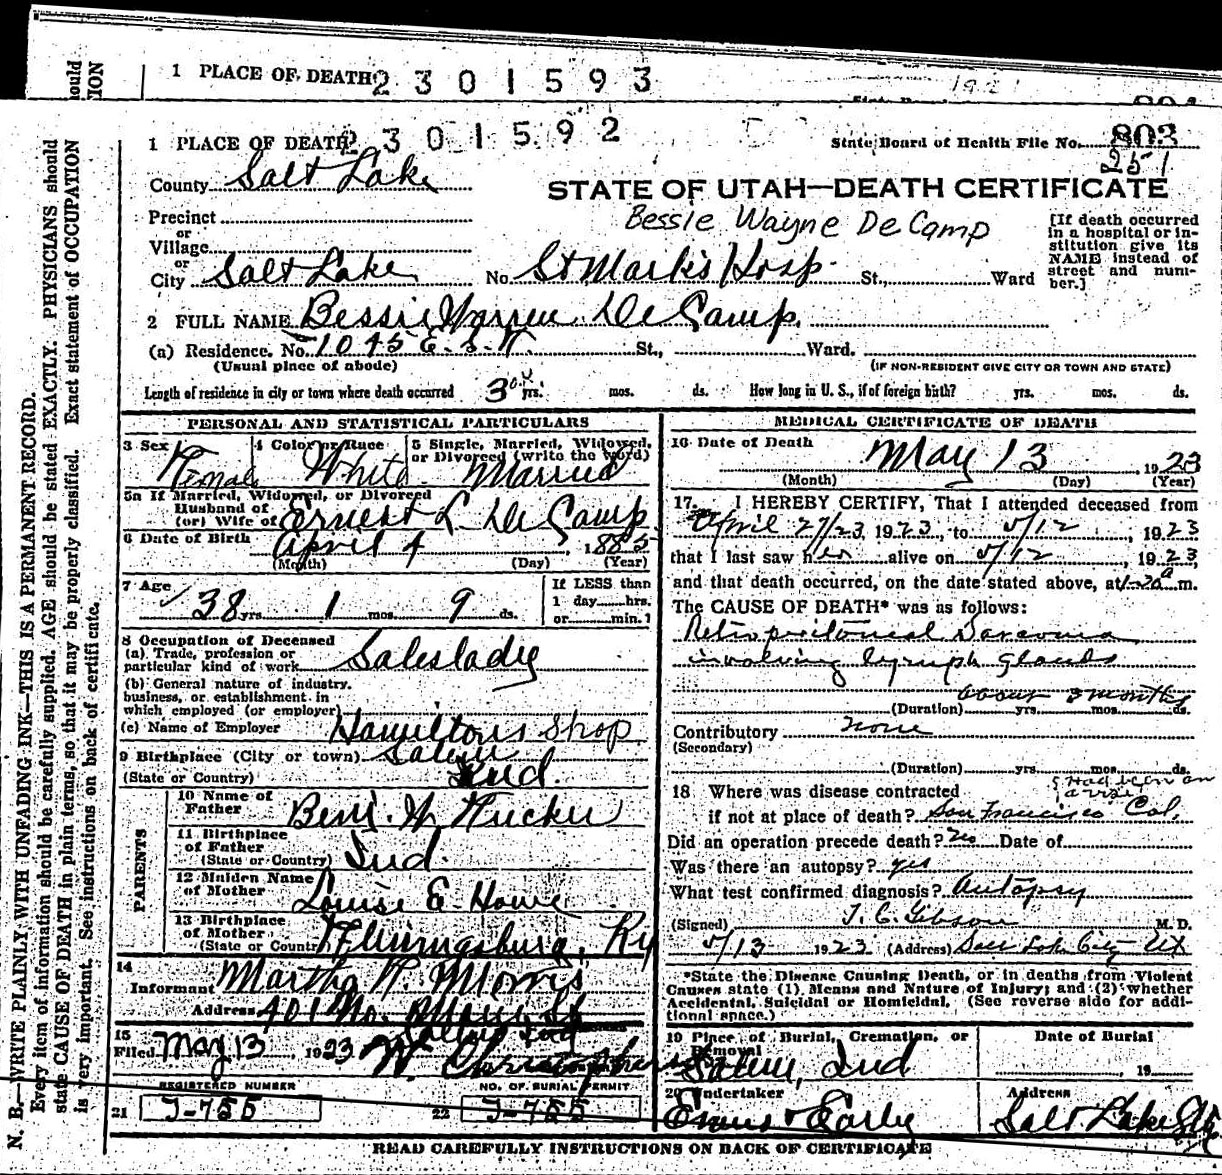 1 PLACE OF DEATH 2301593
1921
1 PLACE OF DEATH 2301592
State Board of Health File No. 803
251
County Salt Lake
STATE OF UTAH—DEATH CERTIFICATE
Bessie Wayne De Camp
Precinct
or
Village
or
City Salt Lake No. St Mark's Hosp. St., Ward
[If death occurred in a hospital or institution give its NAME instead of street and number.]
2 FULL NAME Bessie Warren De Camp
(a) Residence. No. 1045 E. S. T. St., Ward.
(Usual place of abode)
(IF NON-RESIDENT GIVE CITY OR TOWN AND STATE)
Length of residence in city or town where death occurred 30 yrs. mos. ds. How long in U. S., if of foreign birth? yrs. mos. ds.
PERSONAL AND STATISTICAL PARTICULARS
3 Sex Female
4 Color or Race White
5 Single, Married, Widowed, or Divorced (write the word) Married
5a If Married, Widowed, or Divorced
Husband of
(or) Wife of Ernest L. De Camp
6 Date of Birth April 4, 1885
(Month) (Day) (Year)
7 Age 38 yrs. 1 mos. 9 ds.
If LESS than
1 day......hrs.
or......min.?
8 Occupation of Deceased
(a) Trade, profession or
particular kind of work Saleslady
(b) General nature of industry.
business, or establishment in
which employed (or employer)
(c) Name of Employer Hamiltons Shop
9 Birthplace (City or town) Salem
(State or Country) Ind.
PARENTS
10 Name of
Father Benj. W. Tucker
11 Birthplace
of Father
(State or Country) Ind.
12 Maiden Name
of Mother Louise E. Howe
13 Birthplace
of Mother
(State or Country) Flemingsburg, Ky
14
Informant Martha N. Morris
Address 401 No. Main St
Salem Ind
15
Filed May 13 1923 W. Christopherson
REGISTERED NUMBER
21 J-755
NO. OF BURIAL PERMIT
22 J-755
MEDICAL CERTIFICATE OF DEATH
16 Date of Death
May 13, 1923
(Month) (Day) (Year)
17. I HEREBY CERTIFY, That I attended deceased from
April 27/23, 1923, to 5/12, 1923
that I last saw her alive on 5/12, 1923,
and that death occurred, on the date stated above, at 1-20 a m.
The CAUSE OF DEATH* was as follows:
Retroperitoneal Sarcoma
involving lymph glands
about 3 months
(Duration) yrs. mos. ds.
Contributory none
(Secondary)
(Duration) yrs. mos. ds.
18 Where was disease contracted
if not at place of death? San Francisco Cal.
Had been on
a visit
Did an operation precede death? No Date of
Was there an autopsy? yes
What test confirmed diagnosis? Autopsy
(Signed) T. C. Gibson M. D.
5/13 1923 (Address) Salt Lake City Ut
*State the Disease Causing Death, or in deaths from Violent
Causes state (1) Means and Nature of Injury; and (2) whether
Accidental, Suicidal or Homicidal. (See reverse side for additional space.)
19 Place of Burial, Cremation, or
Removal
Salem, Ind
Date of Burial
, 19
20 Undertaker
Evans & Early
Address
Salt Lake City
READ CAREFULLY INSTRUCTIONS ON BACK OF CERTIFICATE
N. B.—WRITE PLAINLY WITH UNFADING INK—THIS IS A PERMANENT RECORD.
Every item of information should be carefully supplied. AGE should be stated EXACTLY. PHYSICIANS should
state CAUSE OF DEATH in plain terms, so that it may be properly classified. Exact statement of OCCUPATION
is very important. See instructions on back of certificate.